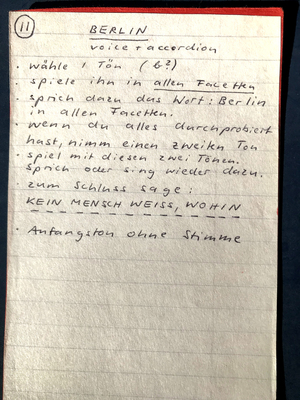 11
BERLIN
voice + accordion
· wähle 1 Tön (b?)
· spiele ihn in allen Facetten
· sprich dazu das Wort: Berlin
in allen Facetten.
· wenn du alles durchprobiert
hast, nimm einen zweiten Ton
· spiel mit diesen zwei Tönen.
sprich oder sing wieder dazu.
· zum Schluss sage:
KEIN MENSCH WEISS, WOHIN
· Anfangston ohne Stimme